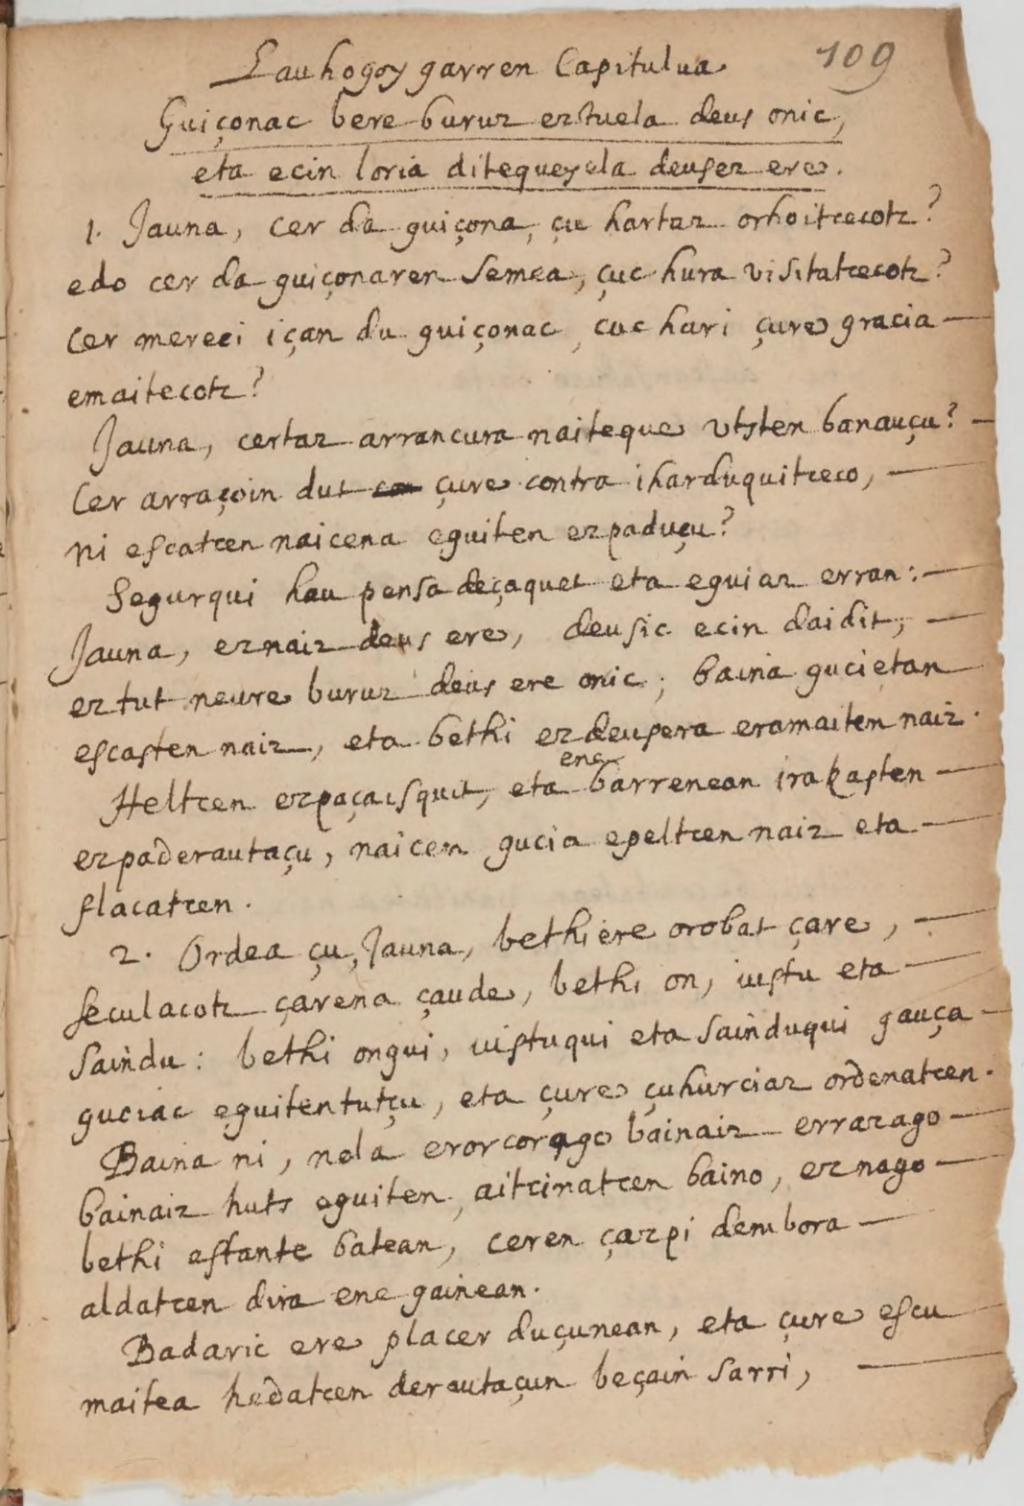 Lauhogoy garren Capitulua 109
Guiçonac bere buruz eztuela deus onic,
eta ecin loria ditequeyela deusez ere.
1. Jauna, cer da guiçona, çu hartaz orhoitcecotz?
edo cer da guiçonaren semea, çuc hura visitatcecotz?
Cer mereci içan du guiçonac, çuc hari çure gracia —
emaitecotz?
Jauna, certaz arrancura naiteque vtsten banauçu? —
Cer arraçoin dut çure contra iharduquitceco, —
ni escatcen naicena eguiten ezpaduçu?
Segurqui hau pensa deçaquet eta eguiaz erran: —
Jauna, eznaiz deus ere, deusic ecin daidit, —
eztut neure buruz deus ere onic; baina gucietan
escasten naiz, eta bethi ezdeusera eramaiten naiz.
Heltcen ezpaçaisquit, eta ene barrenean irakasten —
ezpaderautaçu, naicen gucia epeltcen naiz eta —
flacatcen.
2. Ordea çu, Jauna, bethiere orobat çare, —
seculacotz çarena çaude, bethi on, iustu eta —
saindu: bethi ongui, iustuqui eta sainduqui gauça —
guciac eguiten tutçu, eta çure çuhurciaz ordenatcen.
Baina ni, nola erorcorago bainaiz errazago —
bainaiz huts eguiten, aitcinatcen baino, eznago —
bethi estante batean, ceren çazpi dembora —
aldatcen dira ene gainean.
Badaric ere placer duçunean, eta çure escu
maitea hedatcen derautaçun beçain sarri, —